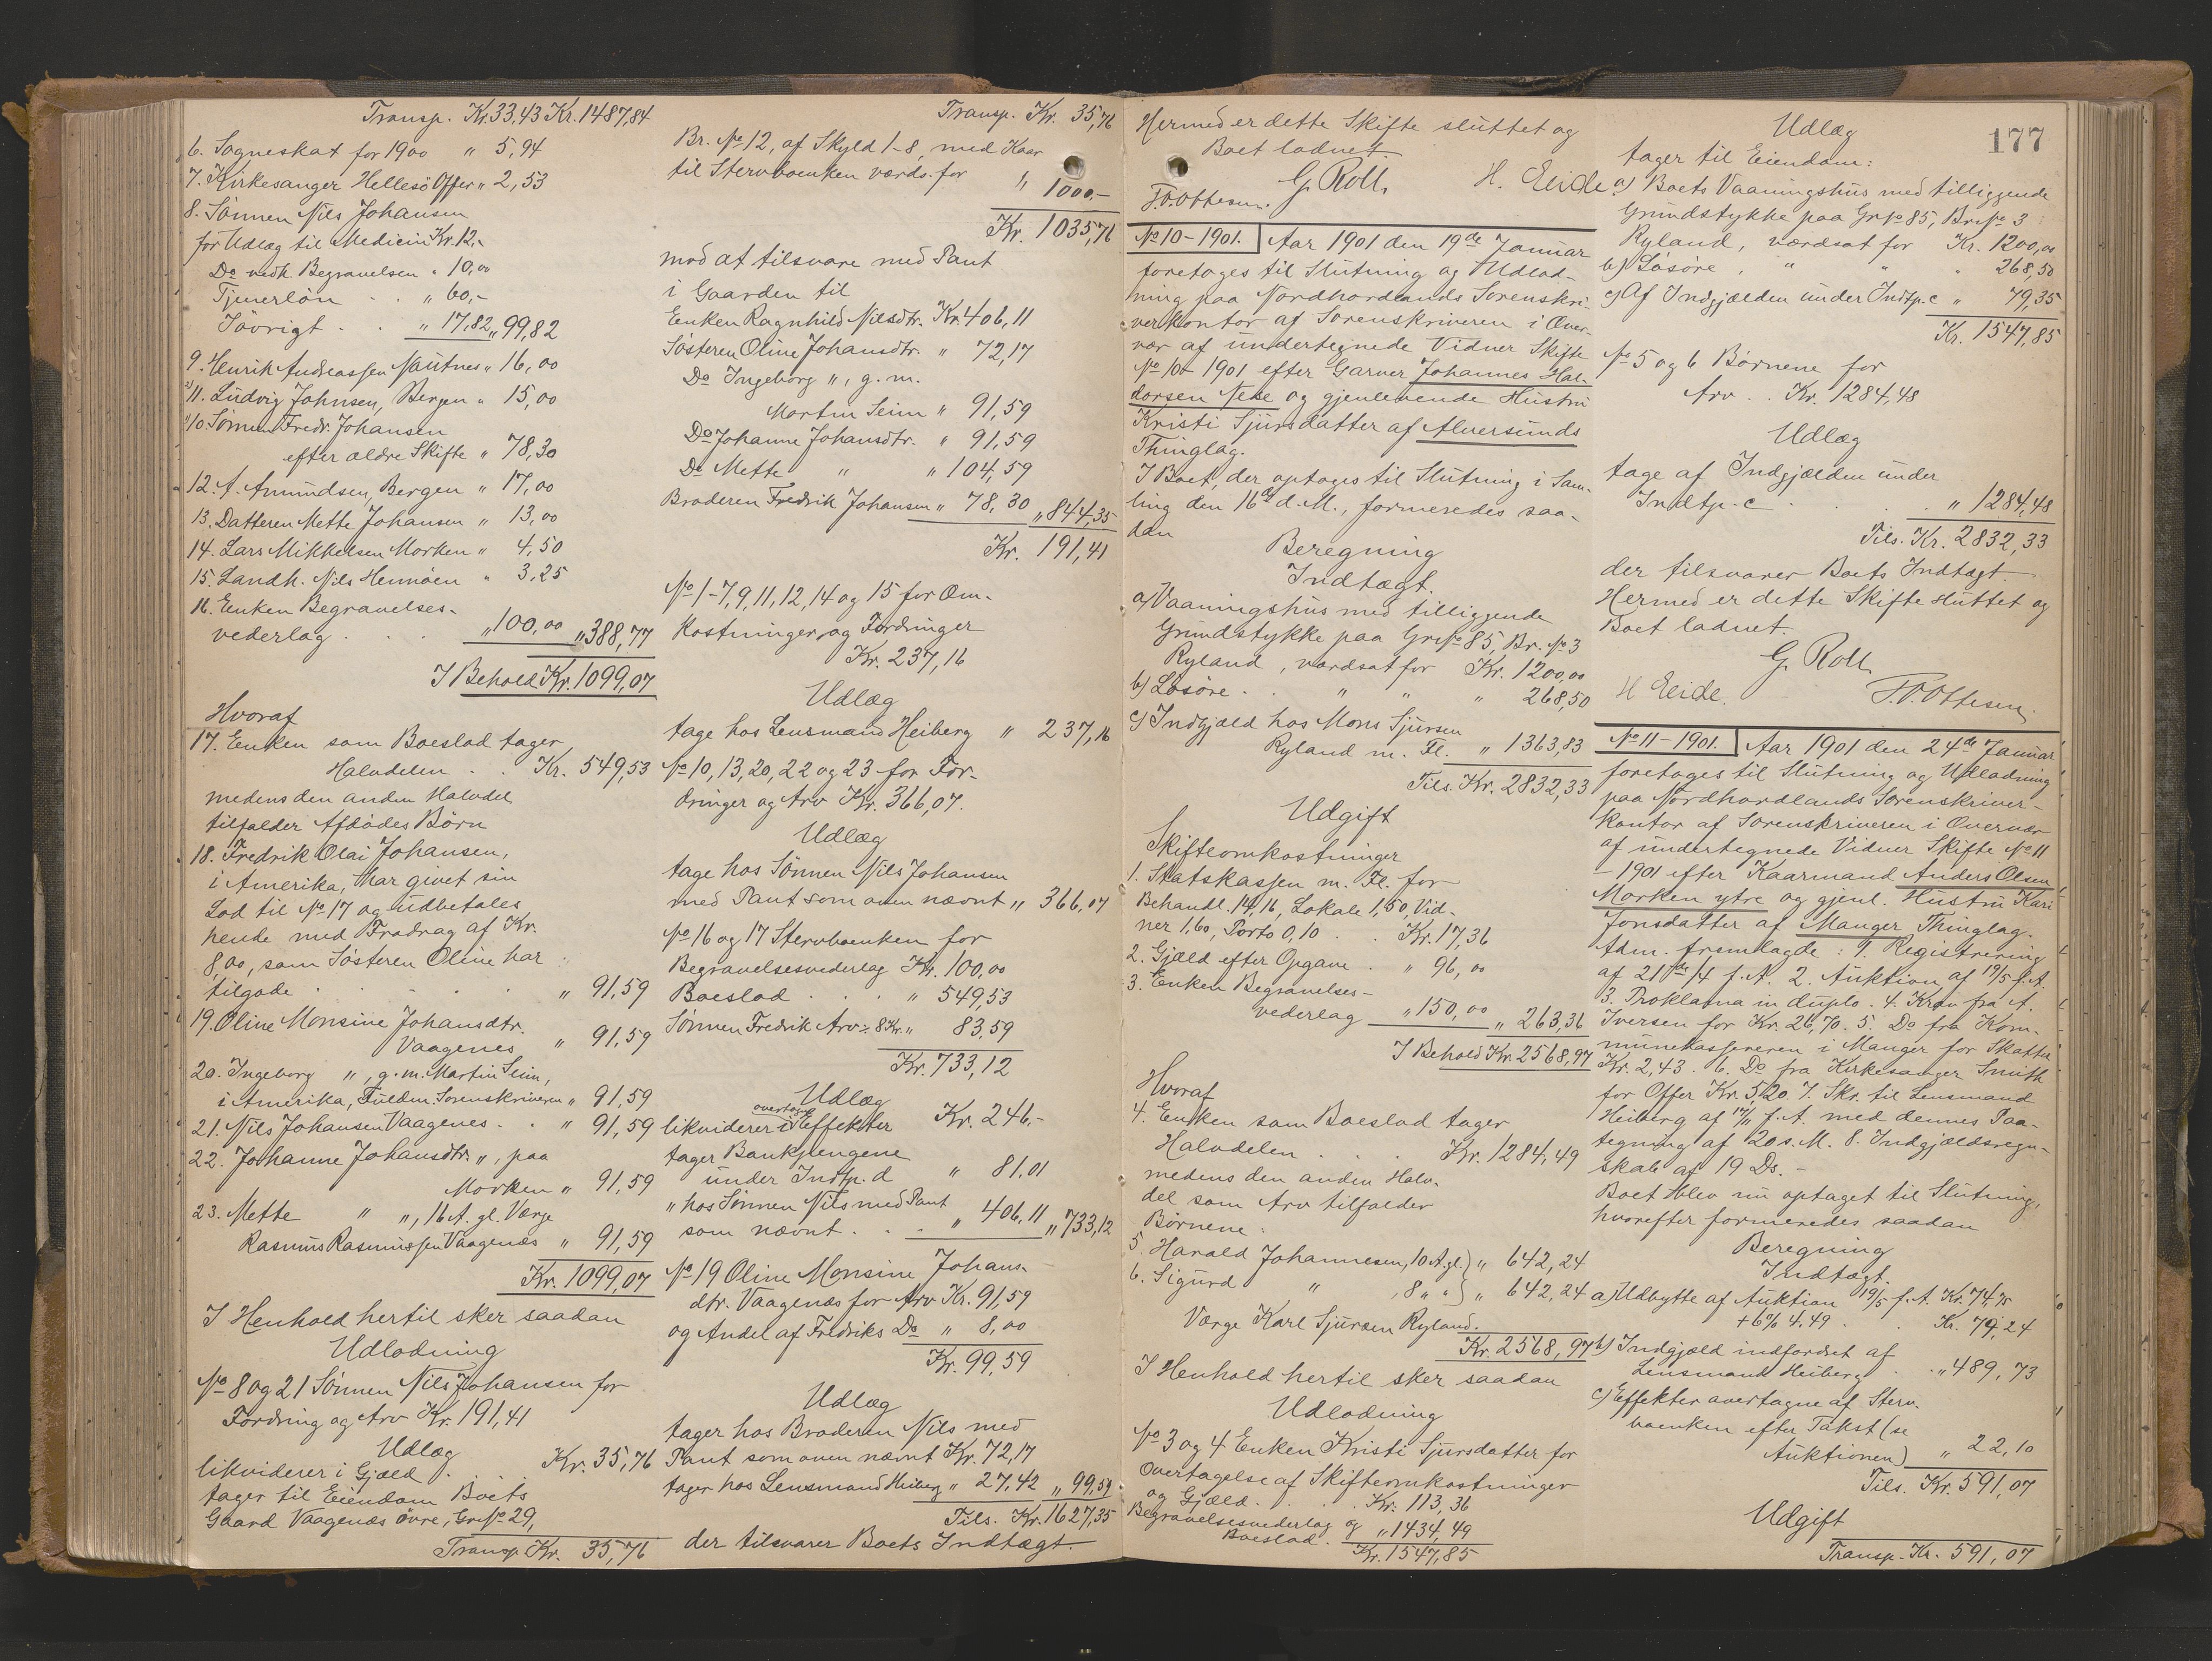 Transp. Kr. 33,43 Kr. 1487,84
6. Sogneskat for 1900 " 5,94
7. Kirkesanger Hellesö Offer " 2,53
8. Sönnen Nils Johansen
for Udlæg til Medicin Kr. 12,-
Do vedk. Begravelsen " 10,00
Tjenerlön . . " 60,-
Iövrigt . . " 17,82 " 99,82
9. Henrik Andreassen Nautnes " 16,00
2) 11. Ludvig Johnsen, Bergen " 15,00
1) 10. Sönnen Fredr. Johansen
efter ældre Skifte " 78,30
12. A. Amundsen, Bergen " 17,00
13. Datteren Mette Johansen " 13,00
14. Lars Mikkelsen Morken " 4,50
15. Landh. Nils Hennöen " 3,25
16. Enken Begravelses-
vederlag . . . " 100,00 " 388,77
I Behold Kr. 1099,07
Hvoraf
17. Enken som Boeslod tager
Halvdelen . . Kr. 549,53
medens den anden Halvdel
tilfalder Afdödes Börn
18. Fredrik Olai Johansen,
i Amerika, har givet sin
Lod til No 17 og udbetales
hende med Fradrag af Kr.
8,00, som Sösteren Oline har
tilgode . . . . . " 91,59
19. Oline Monsine Johansdtr.
Vaagenes " 91,59
20. Ingeborg ", g. m. Martin Seim,
i Amerika, Fuldm. Sorenskriveren " 91,59
21. Nils Johansen Vaagenes . . " 91,59
22. Johanne Johansdtr. ", paa
Morken " 91,59
23. Mette " ", 16 A. gl. Værge
Rasmus Rasmussen Vaagenæs " 91,59
Kr. 1099,07
I Henhold hertil sker saadan
Udlodning
No 8 og 21 Sönnen Nils Johansen for
Fordring og Arv Kr. 191,41
Udlæg
likviderer i Gjæld . . . Kr. 35,76
tager til Eiendom Boets
Gaard Vaagenæs övre, Gr. No 29,
Transp. Kr. 35,76
Transp. Kr. 35,76
Br. No 12, af Skyld 1-8, med Kaar
til Stervboenken værds. for " 1000.-
Kr. 1035,76
mod at tilsvare med Pant
i Gaarden til
Enken Ragnhild Nilsdtr. Kr. 406,11
Sösteren Oline Johansdtr. " 72,17
Do Ingeborg ", g. m.
Martin Seim " 91,59
Do Johanne Johansdtr. " 91,59
Do Mette " " 104,59
Broderen Fredrik Johansen " 78,30 " 844,35
Kr. 191,41
No 1-7, 9, 11, 12, 14 og 15 for Om-
kostninger og Fordringer
Kr. 237,16
Udlæg
tage hos Lensmand Heiberg " 237,16
No 10, 13, 20, 22 og 23 for For-
dringer og Arv Kr. 366,07.
Udlæg
tage hos Sönnen Nils Johansen
med Pant som oven nævnt " 366,07
No 16 og 17 Stervboenken for
Begravelsesvederlag Kr. 100,00
Boeslod . . . " 549,53
Sönnen Fredrik Arv ÷ 8 Kr. " 83,59
Kr. 733,12
Udlæg
likviderer i overtagne Effekter Kr. 246,-
tager Bankpengene
under Indtp. d " 81,01
" hos Sönnen Nils med Pant
som nævnt . . " 406,11 " 733,12
No 19 Oline Monsine Johans-
dtr. Vaagenæs for Arv Kr. 91,59
og Andel af Fredriks Do " 8,00
Kr. 99,59
Udlæg
tager hos Broderen Nils med
Pant som oven nævnt Kr. 72,17
tager hos Lensmand Heiberg " 27,42 " 99,59
Tils. Kr. 1627,35
der tilsvarer Boets Indtægt.
Hermed er dette Skifte sluttet og
Boet ladnet.
G. Roll. H. Eeide.
F. O. Ottesen.
No 10-1901. Aar 1901 den 19de Januar
foretoges til Slutning og Udlod-
ning paa Nordhordlands Sorenskri-
verkontor af Sorenskriveren i Over-
vær af undertegnede Vidner Skifte
No 10 - 1901 efter Garver Johannes Hal-
dorsen Nese og gjenlevende Hustru
Kristi Sjursdatter af Alversunds
Thinglag.
I Boet, der optoges til Slutning i Sam-
ling den 16de d. M., formeredes saa-
dan
Beregning
Indtægt.
a) Vaaningshus med tilliggende
Grundstykke paa Gr. No 85, Br. No 3
Ryland, værdsat for Kr. 1200,00
b) Lösöre . . " " " 268,50
c) Indgjæld hos Mons Sjursen
Ryland m. Fl. " 1363,83
Tils. Kr. 2832,33
Udgift
Skifteomkostninger
1. Statskassen m. Fl. for
Behandl. 14,16, Lokale 1,50, Vid-
ner 1,60, Porto 0,10 . . Kr. 17,36
2. Gjæld efter Opgave . " 96,00
3. Enken Begravelses-
vederlag " 150,00 " 263,36
I Behold Kr. 2568,97
Hvoraf
4. Enken som Boeslod tager
Halvdelen . . . Kr. 1284,49
medens den anden Halv-
del som Arv tilfalder
Börnene:
5. Harald Johannesen, 10 A. gl. } " 642,24
6. Sigurd " , 8 " " } " 642,24
Værge Karl Sjursen Ryland.
Kr. 2568,97
I Henhold hertil sker saadan
Udlodning
No 3 og 4 Enken Kristi Sjursdatter for
Overtagelse af Skifteomkostninger
og Gjæld . . . . Kr. 113,36
Begravelsesvederlag og
Boeslod . " 1434,49
Kr. 1547,85
177
Udlæg
tager til Eiendom:
a) Boets Vaaningshus med tilliggende
Grundstykke paa Gr. No 85, Br. No 3
Ryland, værdsat for Kr. 1200,00
b) Lösöre, " " " 268,50
c) Af Indgjælden under Indtp. c " 79,35
Kr. 1547,85
No 5 og 6 Börnene for
Arv . . Kr. 1284,48
Udlæg
tage af Indgjælden under
Indtp. c . . . . " 1284,48
Tils. Kr. 2832,33
der tilsvarer Boets Indtægt.
Hermed er dette Skifte sluttet og
Boet ladnet.
G. Roll
H Eeide. F. O. Ottesen.
No 11-1901. Aar 1901 den 24de Januar
foretoges til Slutning og Udlodning
paa Nordhordlands Sorenskriver-
kontor af Sorenskriveren i Overvær
af undertegnede Vidner Skifte No 11
- 1901 efter Kaarmand Anders Olsen
Morken ytre og gjenl. Hustru Kari
Jonsdatter af Manger Thinglag.
Adm. fremlagde: 1. Registrering
af 21de/4 f. A. 2. Auktion af 19/5 f. A.
3. Proklama in duplo. 4. Krav fra A.
Iversen for Kr. 26,70. 5. Do fra Kom-
munekassereren i Manger for Skatter
Kr. 2,43. 6. Do fra Kirkesanger Smith
for Offer Kr. 5,20. 7. Skr. til Lensmand
Heiberg af 17/11 f. A. med dennes Paa-
tegning af 20 s. M. 8. Indgjældsregn-
skab af 19 Ds. -
Boet blev nu optaget til Slutning,
hvorefter formeredes saadan
Beregning
Indtægt.
a) Udbytte af Auktion 19/5 f. A. Kr. 74,75
+ 6% 4.49 . . Kr. 79,24
b) Indgjæld indfordret af
Lensmand Heiberg . . " 489,73
c) Effekter overtagne af Sterv-
boenken efter Takst (se
Auktionen) " 22,10
Tils. Kr. 591,07
Udgift
Transp. Kr. 591,07